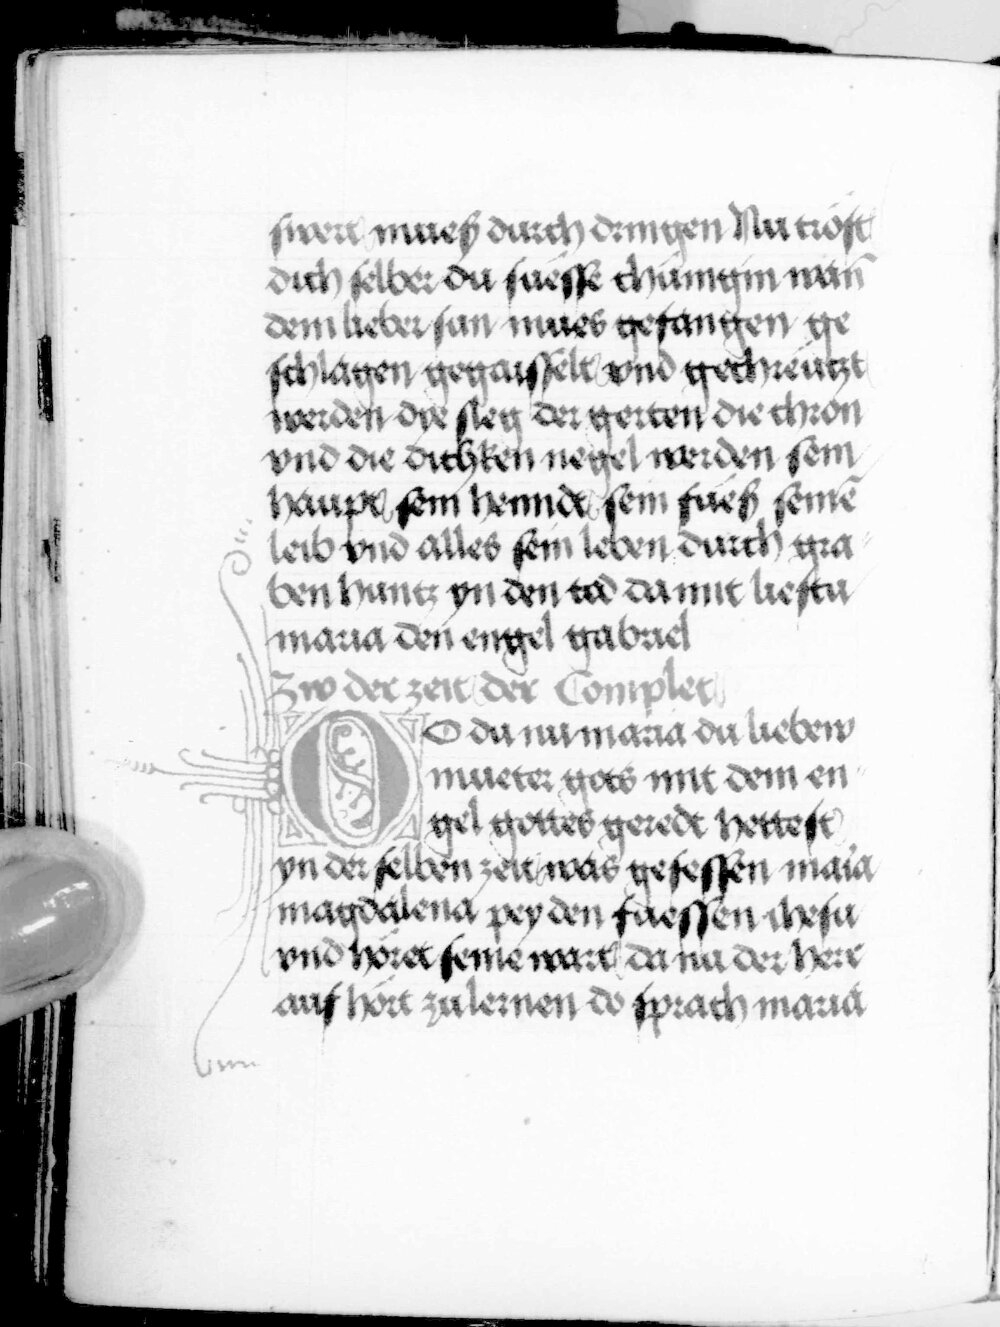 swert mueß durch dringen Nu tröst
dich selber du süesse chünigin wan̄
dein lieber sun mues gefangen ge
schlagen gegaisselt vnd gechreützt
werden dye sleg der gerten die chron
vnd die dichken negel werden sein
haupt sein henndt sein füeß seinē
leib vnd alles sein leben durch gra
ben huntz yn den tod da mit liestu
maria den engel gabriel
Zw der zeit der Complet
O du nu maria du liebew
mueter gots mit dem en
gel gottes geredt hettest
yn der selben zeit was gesessen maria
magdalena pey den füessen ihesu
vnd höret seine wart da nu der herr
auf hört zu lernen do sprach maria